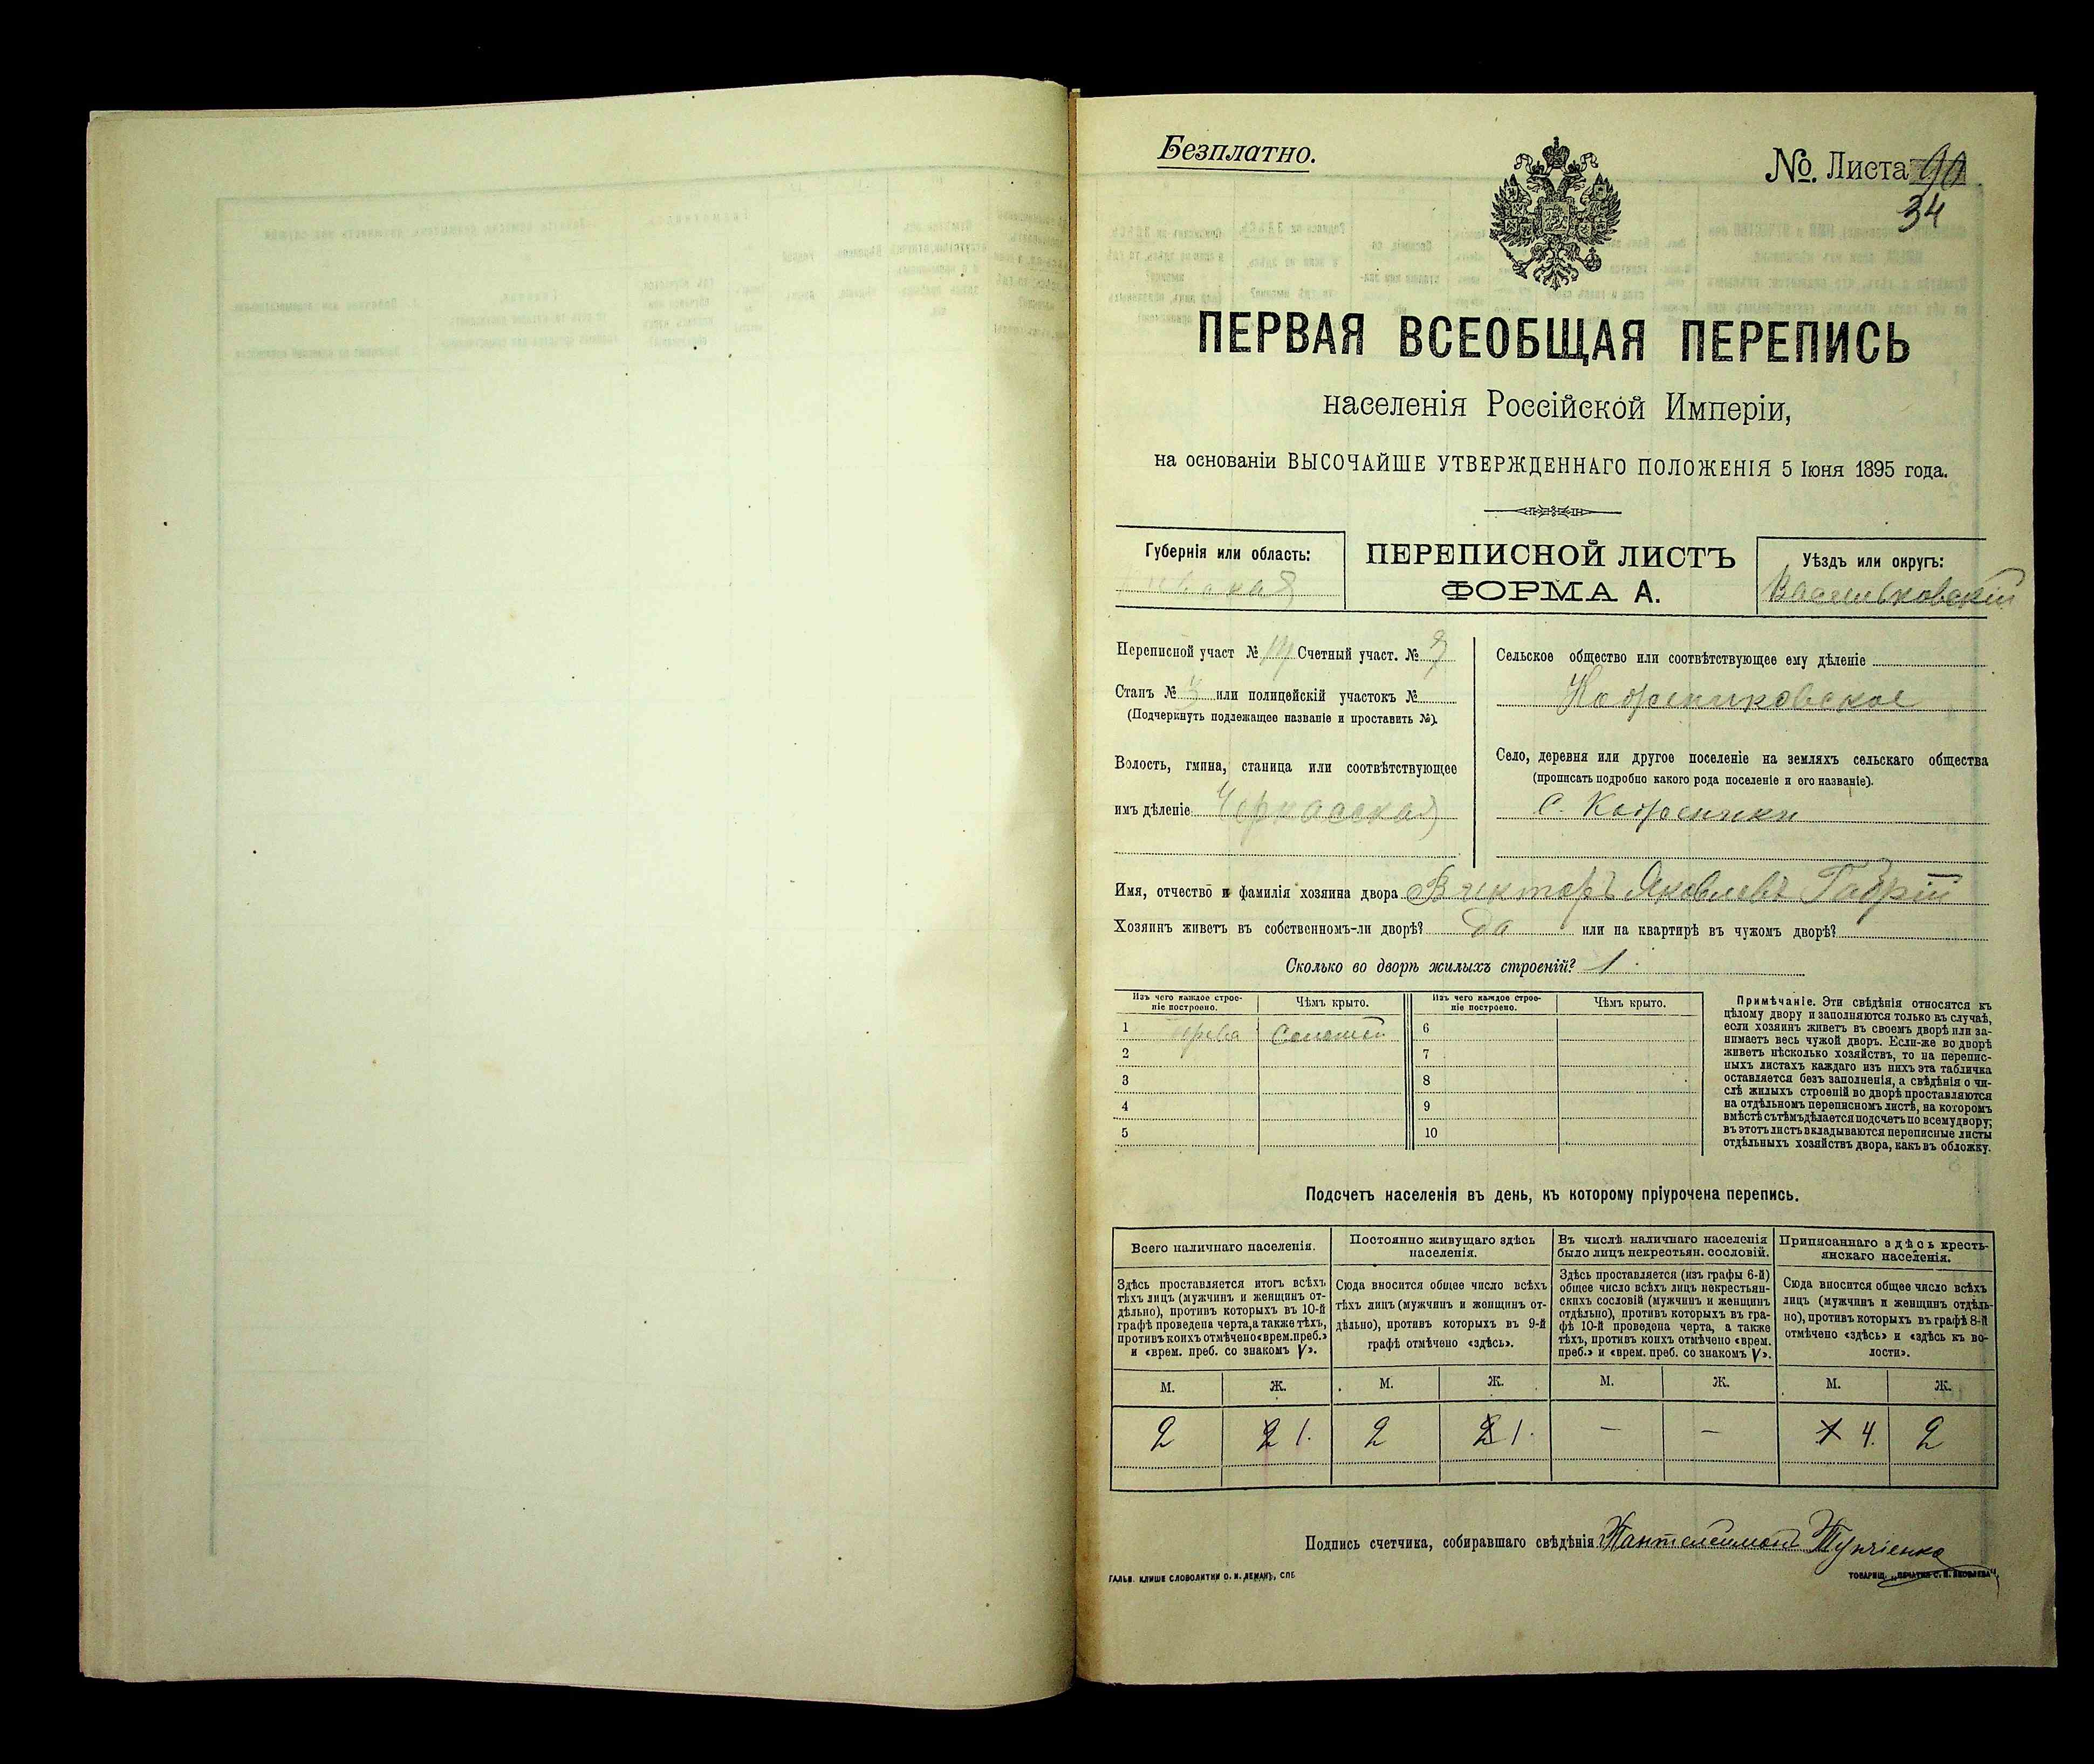 Безплатно.
№ Листа 90
34
ПЕРВАЯ ВСЕОБЩАЯ ПЕРЕПИСЬ
населенія Россійской Имперіи,
на основаніи ВЫСОЧАЙШЕ УТВЕРЖДЕННАГО ПОЛОЖЕНІЯ 5 Іюня 1895 года.
Губернія или область:
ПЕРЕПИСНОЙ ЛИСТЪ
ФОРМА А.
Уѣздъ или округъ:
Васильковскій
Переписной участ № 14 Счетный участ. №
Станъ № 3 или полицейскій участокъ №
(Подчеркнуть подлежащее названіе и проставить №).
Волость, гмина, станица или соотвѣтствующее
имъ дѣленіе Черкасская
Сельское общество или соотвѣтствующее ему дѣленіе
Кожениковское
Село, деревня или другое поселеніе на земляхъ сельскаго общества
(прописать подробно какого рода поселеніе и его названіе).
с. Коженики
Имя, отчество и фамилія хозяина двора Викторъ Яковлевъ
Хозяинъ живетъ въ собственномъ-ли дворѣ? да или на квартирѣ въ чужомъ дворѣ?
Сколько во дворѣ жилыхъ строеній? 1.
Изъ чего каждое строе-
ніе построено.
Чѣмъ крыто.
Изъ чего каждое строе-
ніе построено.
Чѣмъ крыто.
1 6
2 7
3 8
4 9
5 10
Примѣчаніе. Эти свѣдѣнія относятся къ
цѣлому двору и заполняются только въ случаѣ,
если хозяинъ живетъ въ своемъ дворѣ или за-
нимаетъ весь чужой дворъ. Если-же во дворѣ
живетъ нѣсколько хозяйствъ, то на перепис-
ныхъ листахъ каждаго изъ нихъ эта табличка
оставляется безъ заполненія, а свѣдѣнія о чи-
слѣ жилыхъ строеній во дворѣ проставляются
на отдѣльномъ переписномъ листѣ, на которомъ
вмѣстѣ съ тѣмъ дѣлается подсчетъ по всему двору;
въ этотъ листъ вкладываются переписные листы
отдѣльныхъ хозяйствъ двора, какъ въ обложку.
Подсчетъ населенія въ день, къ которому пріурочена перепись.
Всего наличнаго населенія.
Постоянно живущаго здѣсь
населенія.
Въ числѣ наличнаго населенія
было лицъ некрестьян. сословій.
Приписаннаго здѣсь кресть-
янскаго населенія.
Здѣсь проставляется итогъ всѣхъ
тѣхъ лицъ (мужчинъ и женщинъ от-
дѣльно), противъ которыхъ въ 10-й
графѣ проведена черта, а также тѣхъ,
противъ коихъ отмѣчено «врем. преб.»
и «врем. преб. со знакомъ V».
Сюда вносится общее число всѣхъ
тѣхъ лицъ (мужчинъ и женщинъ от-
дѣльно), противъ которыхъ въ 9-й
графѣ отмѣчено «здѣсь».
Здѣсь проставляется (изъ графы 6-й)
общее число всѣхъ лицъ некрестьян-
скихъ сословій (мужчинъ и женщинъ
отдѣльно), противъ которыхъ въ гра-
фѣ 10-й проведена черта, а также
тѣхъ, противъ коихъ отмѣчено «врем.
преб.» и «врем. преб. со знакомъ V».
Сюда вносится общее число всѣхъ
лицъ (мужчинъ и женщинъ отдѣль-
но), противъ которыхъ въ графѣ 8-й
отмѣчено «здѣсь» и «здѣсь къ во-
лости».
М. Ж. М. Ж. М. Ж. М. Ж.
2 2 1. 2 2 1. — — 1 4. 2
Подпись счетчика, собиравшаго свѣдѣнія Пантелеимонъ
ГАЛЬВ. КЛИШЕ СЛОВОЛИТНИ О. И. ЛЕМАНЪ, СПБ.
ТОВАРИЩ. „ПЕЧАТНЯ С. П. ЯКОВЛЕВА“